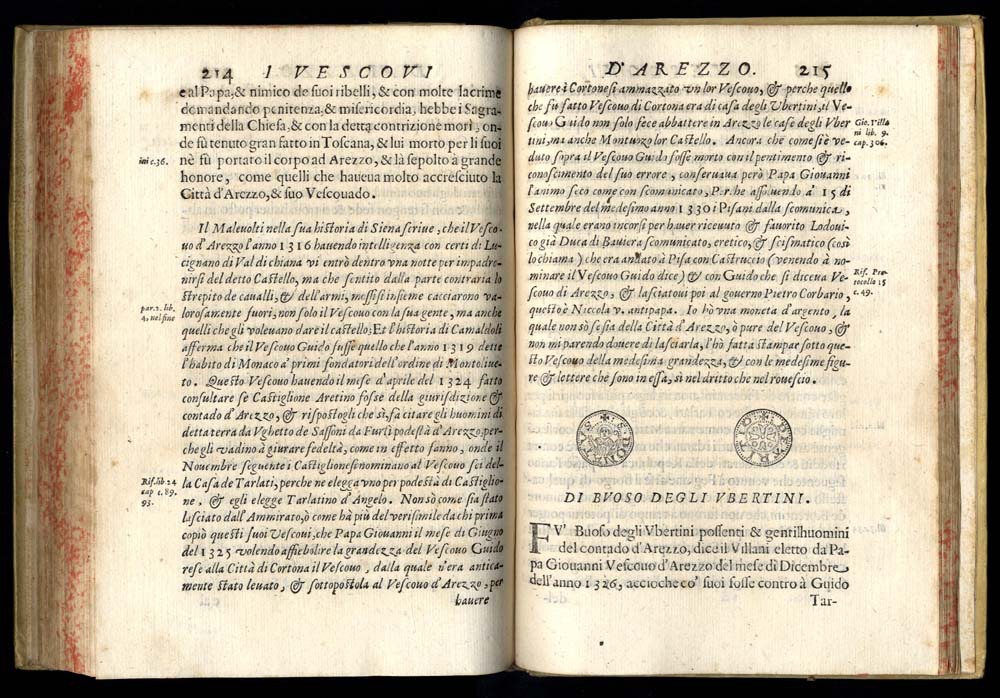 214 I VESCOVI
e al Papa, & nimico de suoi ribelli, & con molte lacrime
domandando penitenza, & misericordia, hebbe i Sagra-
menti della Chiesa, & con la detta contrizione morì, on-
de fù tenuto gran fatto in Toscana, & lui morto per li suoi
ini c.36.
nè fù portato il corpo ad Arezzo, & là sepolto à grande
honore, come quelli che haueua molto accresciuto la
Città d'Arezzo, & suo Vescouado.
Il Maleuolti nella sua historia di Siena scriue, che il Vesco-
uo d'Arezzo l'anno 1316 hauendo intelligenza con certi di Lu-
cignano di Val di chiana vi entrò dentro vna notte per impadro-
nirsi del detto Castello, ma che sentito dalla parte contraria lo
strepito de caualli, & dell'armi, messisi insieme cacciarono va-
par.2. lib.
4. nel fine
lorosamente fuori, non solo il Vescouo con la sua gente, ma anche
quelli che gli voleuano dare il castello; Et l'historia di Camaldoli
afferma che il Vescouo Guido fusse quello che l'anno 1319 dette
l'habito di Monaco a' primi fondatori dell'ordine di Monte oliue-
to. Questo Vescouo hauendo il mese d'aprile del 1324 fatto
consultare se Castiglione Aretino fosse della giurisdizione &
contado d'Arezzo, & rispostogli che sì, fa citare gli huomini di
detta terra da Vghetto de Sassoni da Fursi podestà d'Arezzo, per-
che gli vadino à giurare fedeltà, come in effetto fanno, onde il
Nouembre seguente i Castiglionesi nominano al Vescouo sei del-
Rif. lib. 24
cap c. 89.
93.
la Casa de Tarlati, perche ne elegga vno per podestà di Castiglio-
ne, & egli elegge Tarlatino d'Angelo. Non sò come sia stato
lasciato dall'Ammirato, ò come hà più del verisimile da chi prima
copiò questi suoi Vescoui, che Papa Giouanni il mese di Giugno
del 1325 volendo affiebolire la grandezza del Vescouo Guido
rese alla Città di Cortona il Vescouo, dalla quale n'era antica-
mente stato leuato, & sottopostola al Vescouo d'Arezzo, per
hauere
D'AREZZO. 215
hauere i Cortonesi ammazzato vn lor Vescouo, & perche quello
che fù fatto Vescouo di Cortona era di casa degli Vbertini, il Ve-
scouo Guido non solo fece abbattere in Arezzo le case degli Vber
Gio. Villa
ni lib. 9.
cap. 306.
tini, ma anche Montuzzo lor Castello. Ancora che come si è ve-
duto sopra il Vescouo Guido fosse morto con il pentimento & ri-
conoscimento del suo errore, conseruaua però Papa Giouanni
l'animo seco come con scomunicato, Perche assoluendo à 15 di
Settembre del medesimo anno 1330 i Pisani dalla scomunica,
nella quale erano incorsi per hauer riceuuto & fauorito Lodoui-
co già Duca di Bauiera scomunicato, eretico, & scismatico (così
lo chiama) che era andato à Pisa con Castruccio (venendo à no-
minare il Vescouo Guido dice) & con Guido che si diceua Ve-
Rif. Pro-
tocollo 15
c. 49.
scouo di Arezzo, & lasciatoui poi al gouerno Pietro Corbario,
questo è Niccola v. antipapa. Io hò vna moneta d'argento, la
quale non sò se sia della Città d'Arezzo, ò pure del Vescouo, &
non mi parendo douere di lasciarla, l'hò fatta stampare sotto que-
sto Vescouo della medesima grandezza, & con le medesime figu-
re & lettere che sono in essa, sì nel dritto che nel rouescio.
DI BVOSO DEGLI VBERTINI.
FV' Buoso degli Vbertini possenti & gentilhuomini
del contado d'Arezzo, dice il Villani eletto da Pa-
pa Giouanni Vescouo d'Arezzo del mese di Dicembre
dell'anno 1326, accioche co' suoi fosse contro à Guido
Tar-